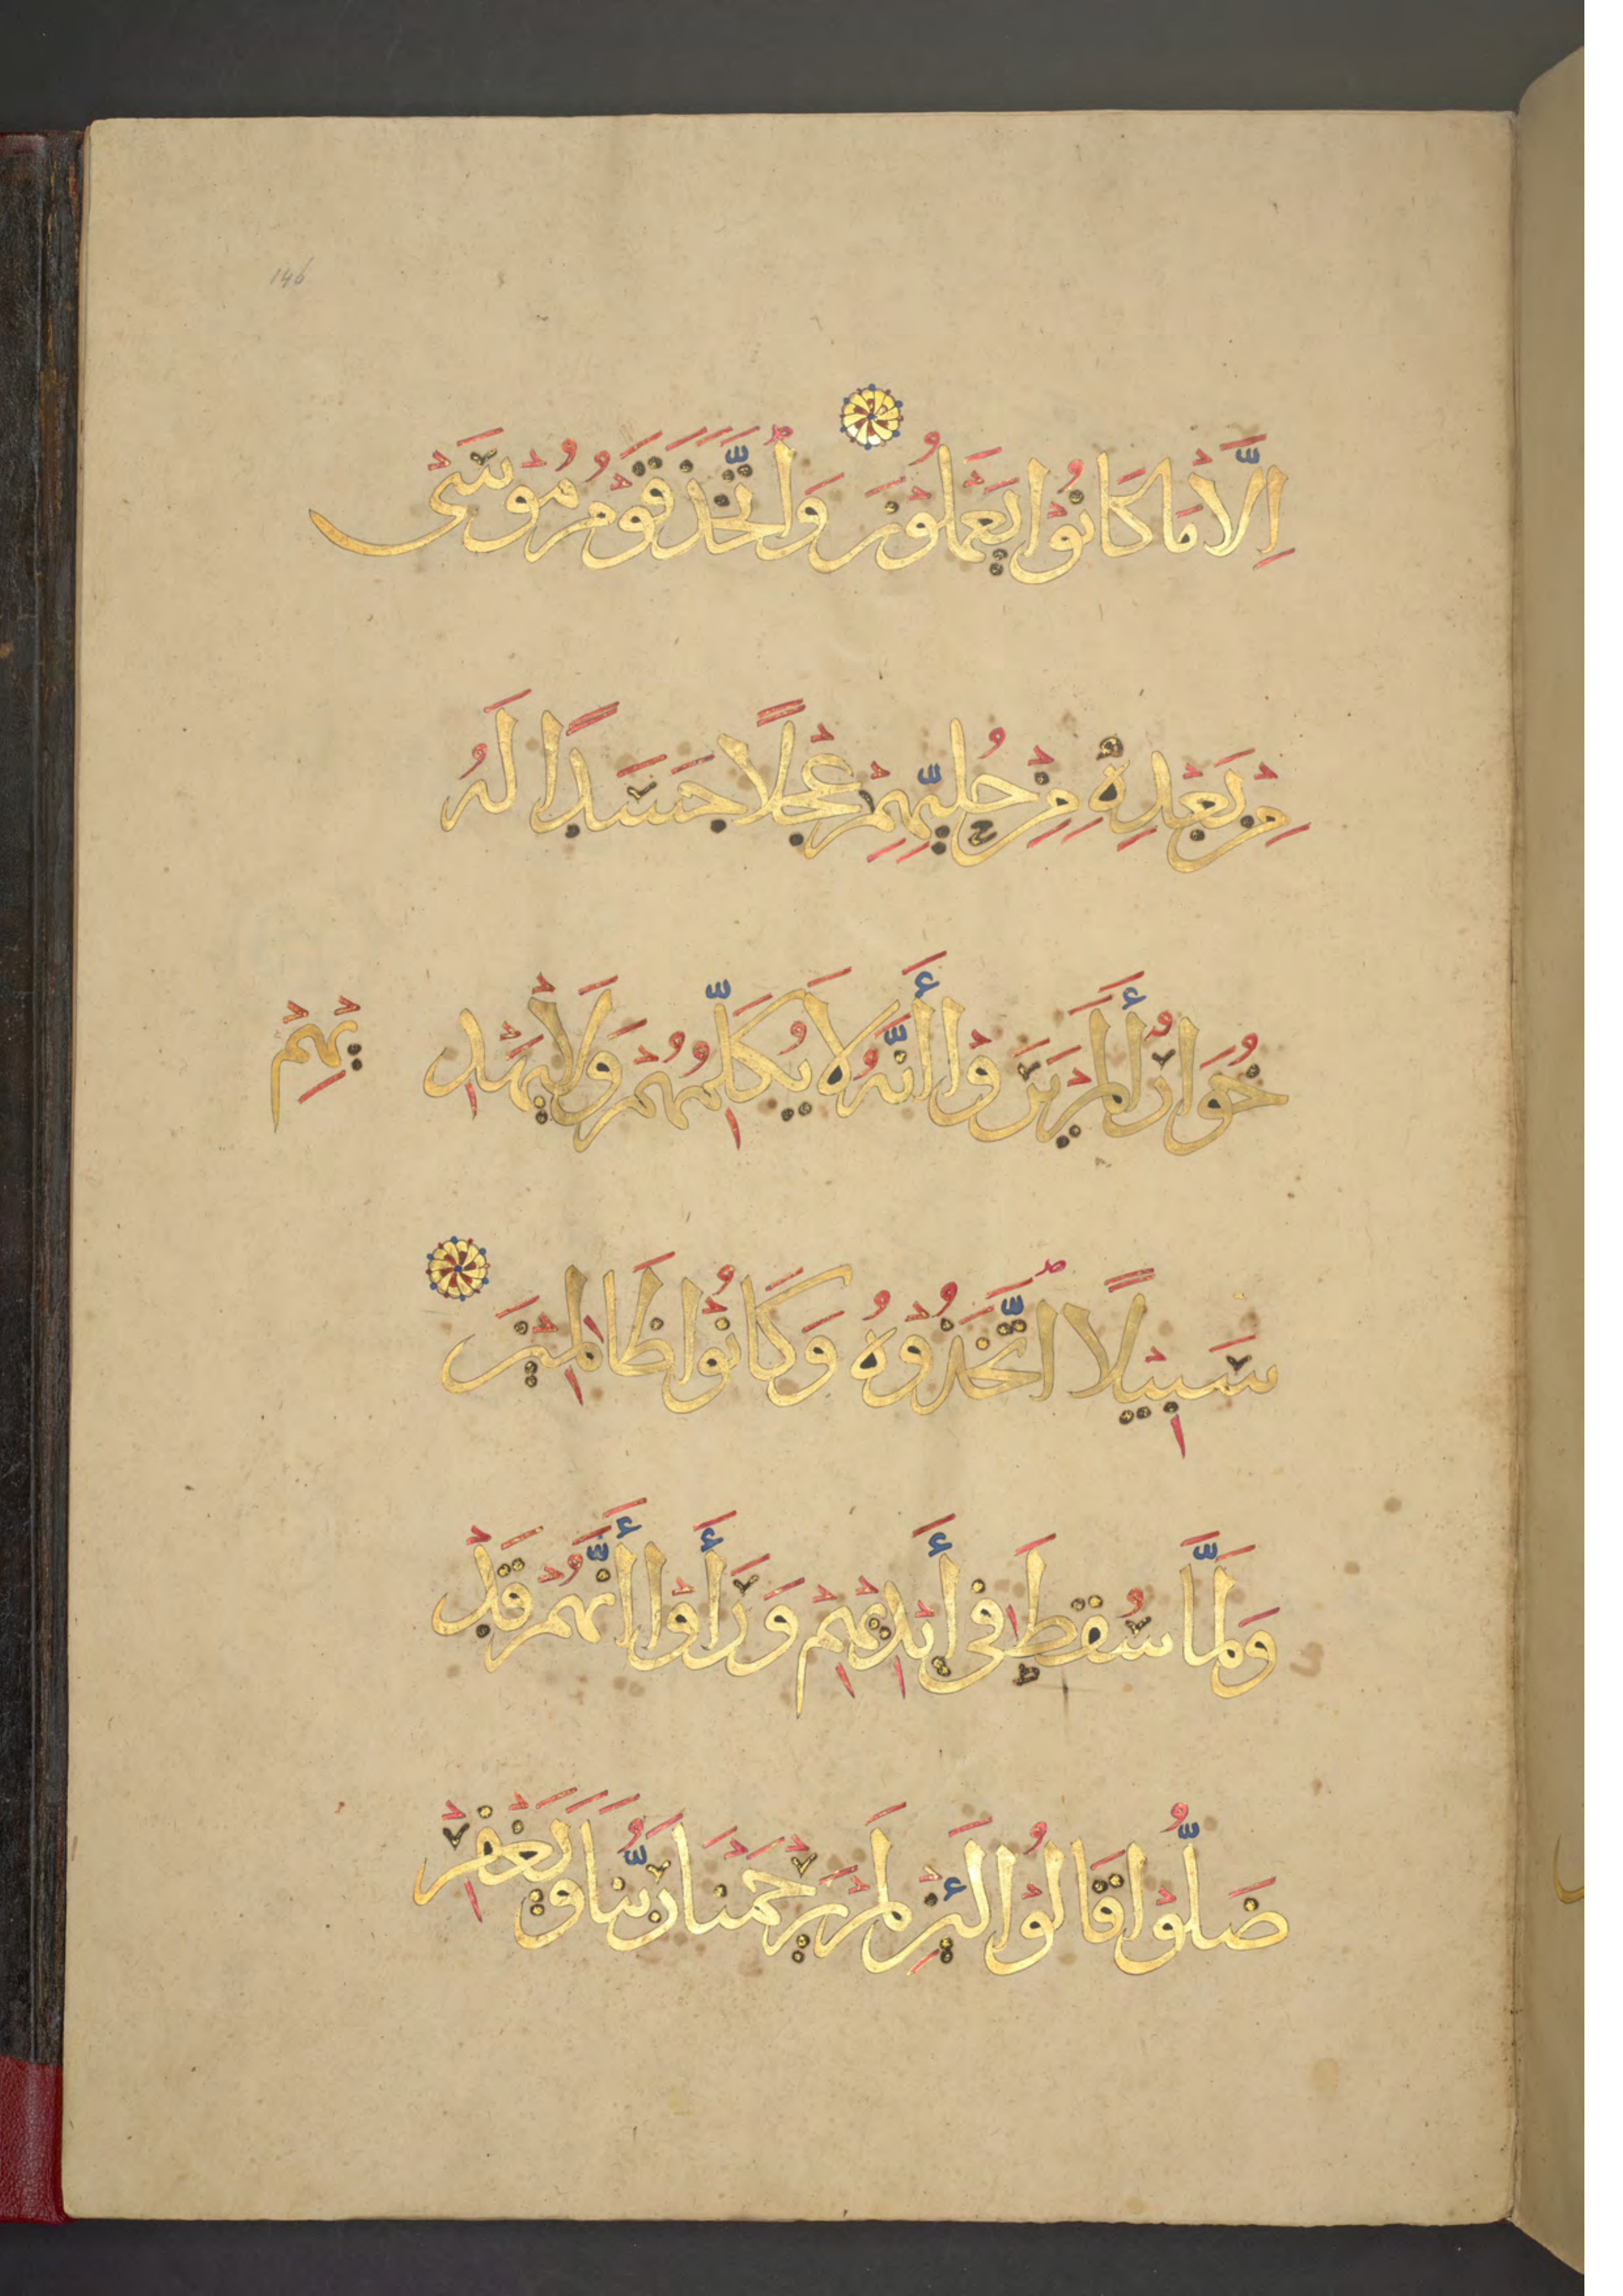 146
إِلَّا مَا كَانُوْا يَعْمَلُوْنَ وَاتَّخَذَ قَوْمُ مُوْسَى
مِنْ بَعْدِهِ مِنْ حُلِيِّهِمْ عِجْلًا جَسَدًا لَهُ
خُوَارٌ أَلَمْ يَرَوْا أَنَّهُ لَا يُكَلِّمُهُمْ وَلَا يَهْدِ
يْهِمْ
سَبِيْلًا اتَّخَذُوْهُ وَكَانُوْا ظَالِمِيْنَ
وَلَمَّا سُقِطَ فِى أَيْدِيْهِمْ وَرَأَوْا أَنَّهُمْ قَدْ
ضَلُّوْا قَالُوْا لَئِنْ لَمْ يَرْحَمْنَا رَبُّنَا وَيَغْفِرْ